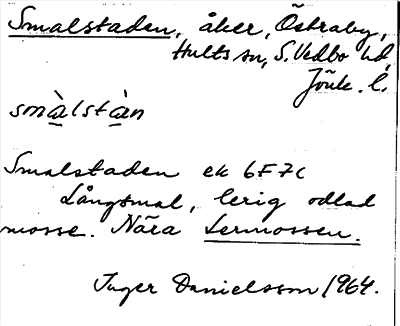 Smalstaden, åker, Östraby,
Hults sn, S. Vedbo hd,
Jönk. l.
smàlstàn
Smalstaden ek 6F7c
Långsmal, lerig odlad
mosse. Nära Lermossen.
Inger Danielsson 1964.